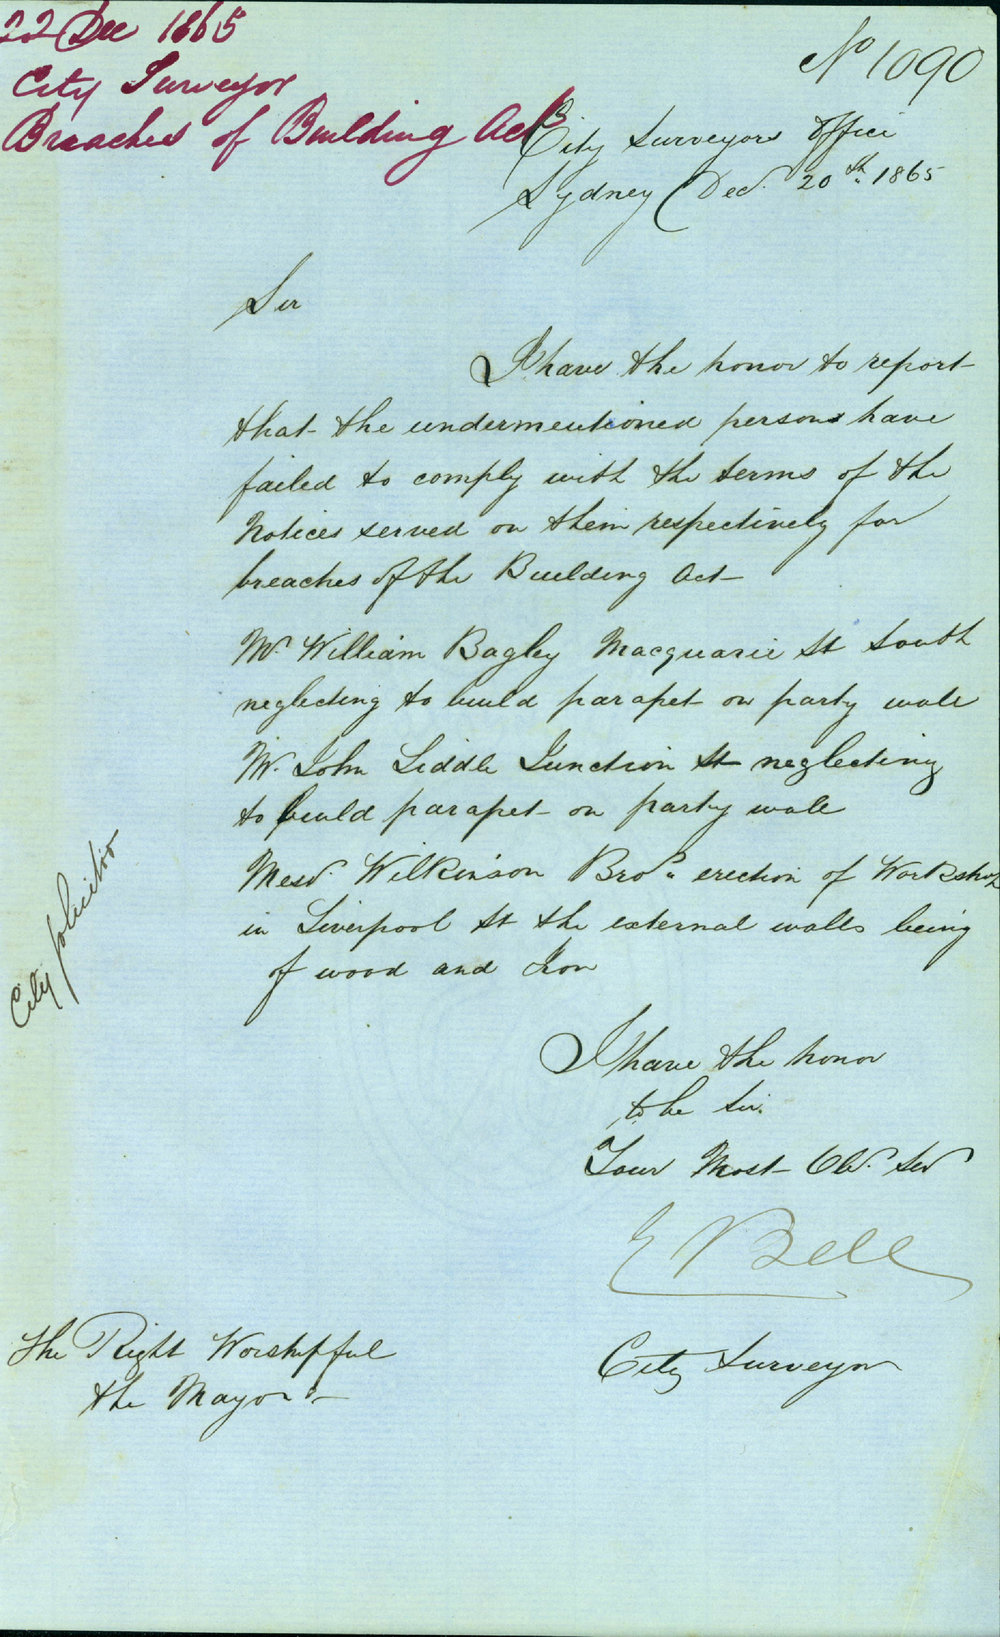 22 Dec 1865
City Surveyor
Breaches of Building Act
No 1090
City Surveyors Office
Sydney Dec. 20th 1865
Sir
I have the honor to report
that the undermentioned persons have
failed to comply with the terms of the
Notices served on them respectively for
breaches of the Building Act
Mr. William Bagley Macquarie St South
neglecting to build parapet on party wall
Mr. John Liddle Junction St neglecting
to build parapet on party wall
Messrs. Wilkinson Bros. erection of Workshop
in Liverpool St the external walls being
of wood and Iron
City Solicitor
I have the honor
to be Sir.
Your Most Obt. Sert
E Bell
City Surveyor
The Right Worshipful
the Mayor